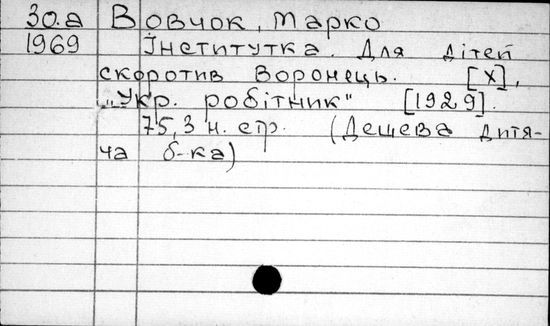 30.а Вовчок, Марко
1969 Інститутка. Для дітей
скоротив Воронець. [Х],
„Укр. робітник" [1929].
75,3 н. стр. (Дешева дитя-
ча б-ка)